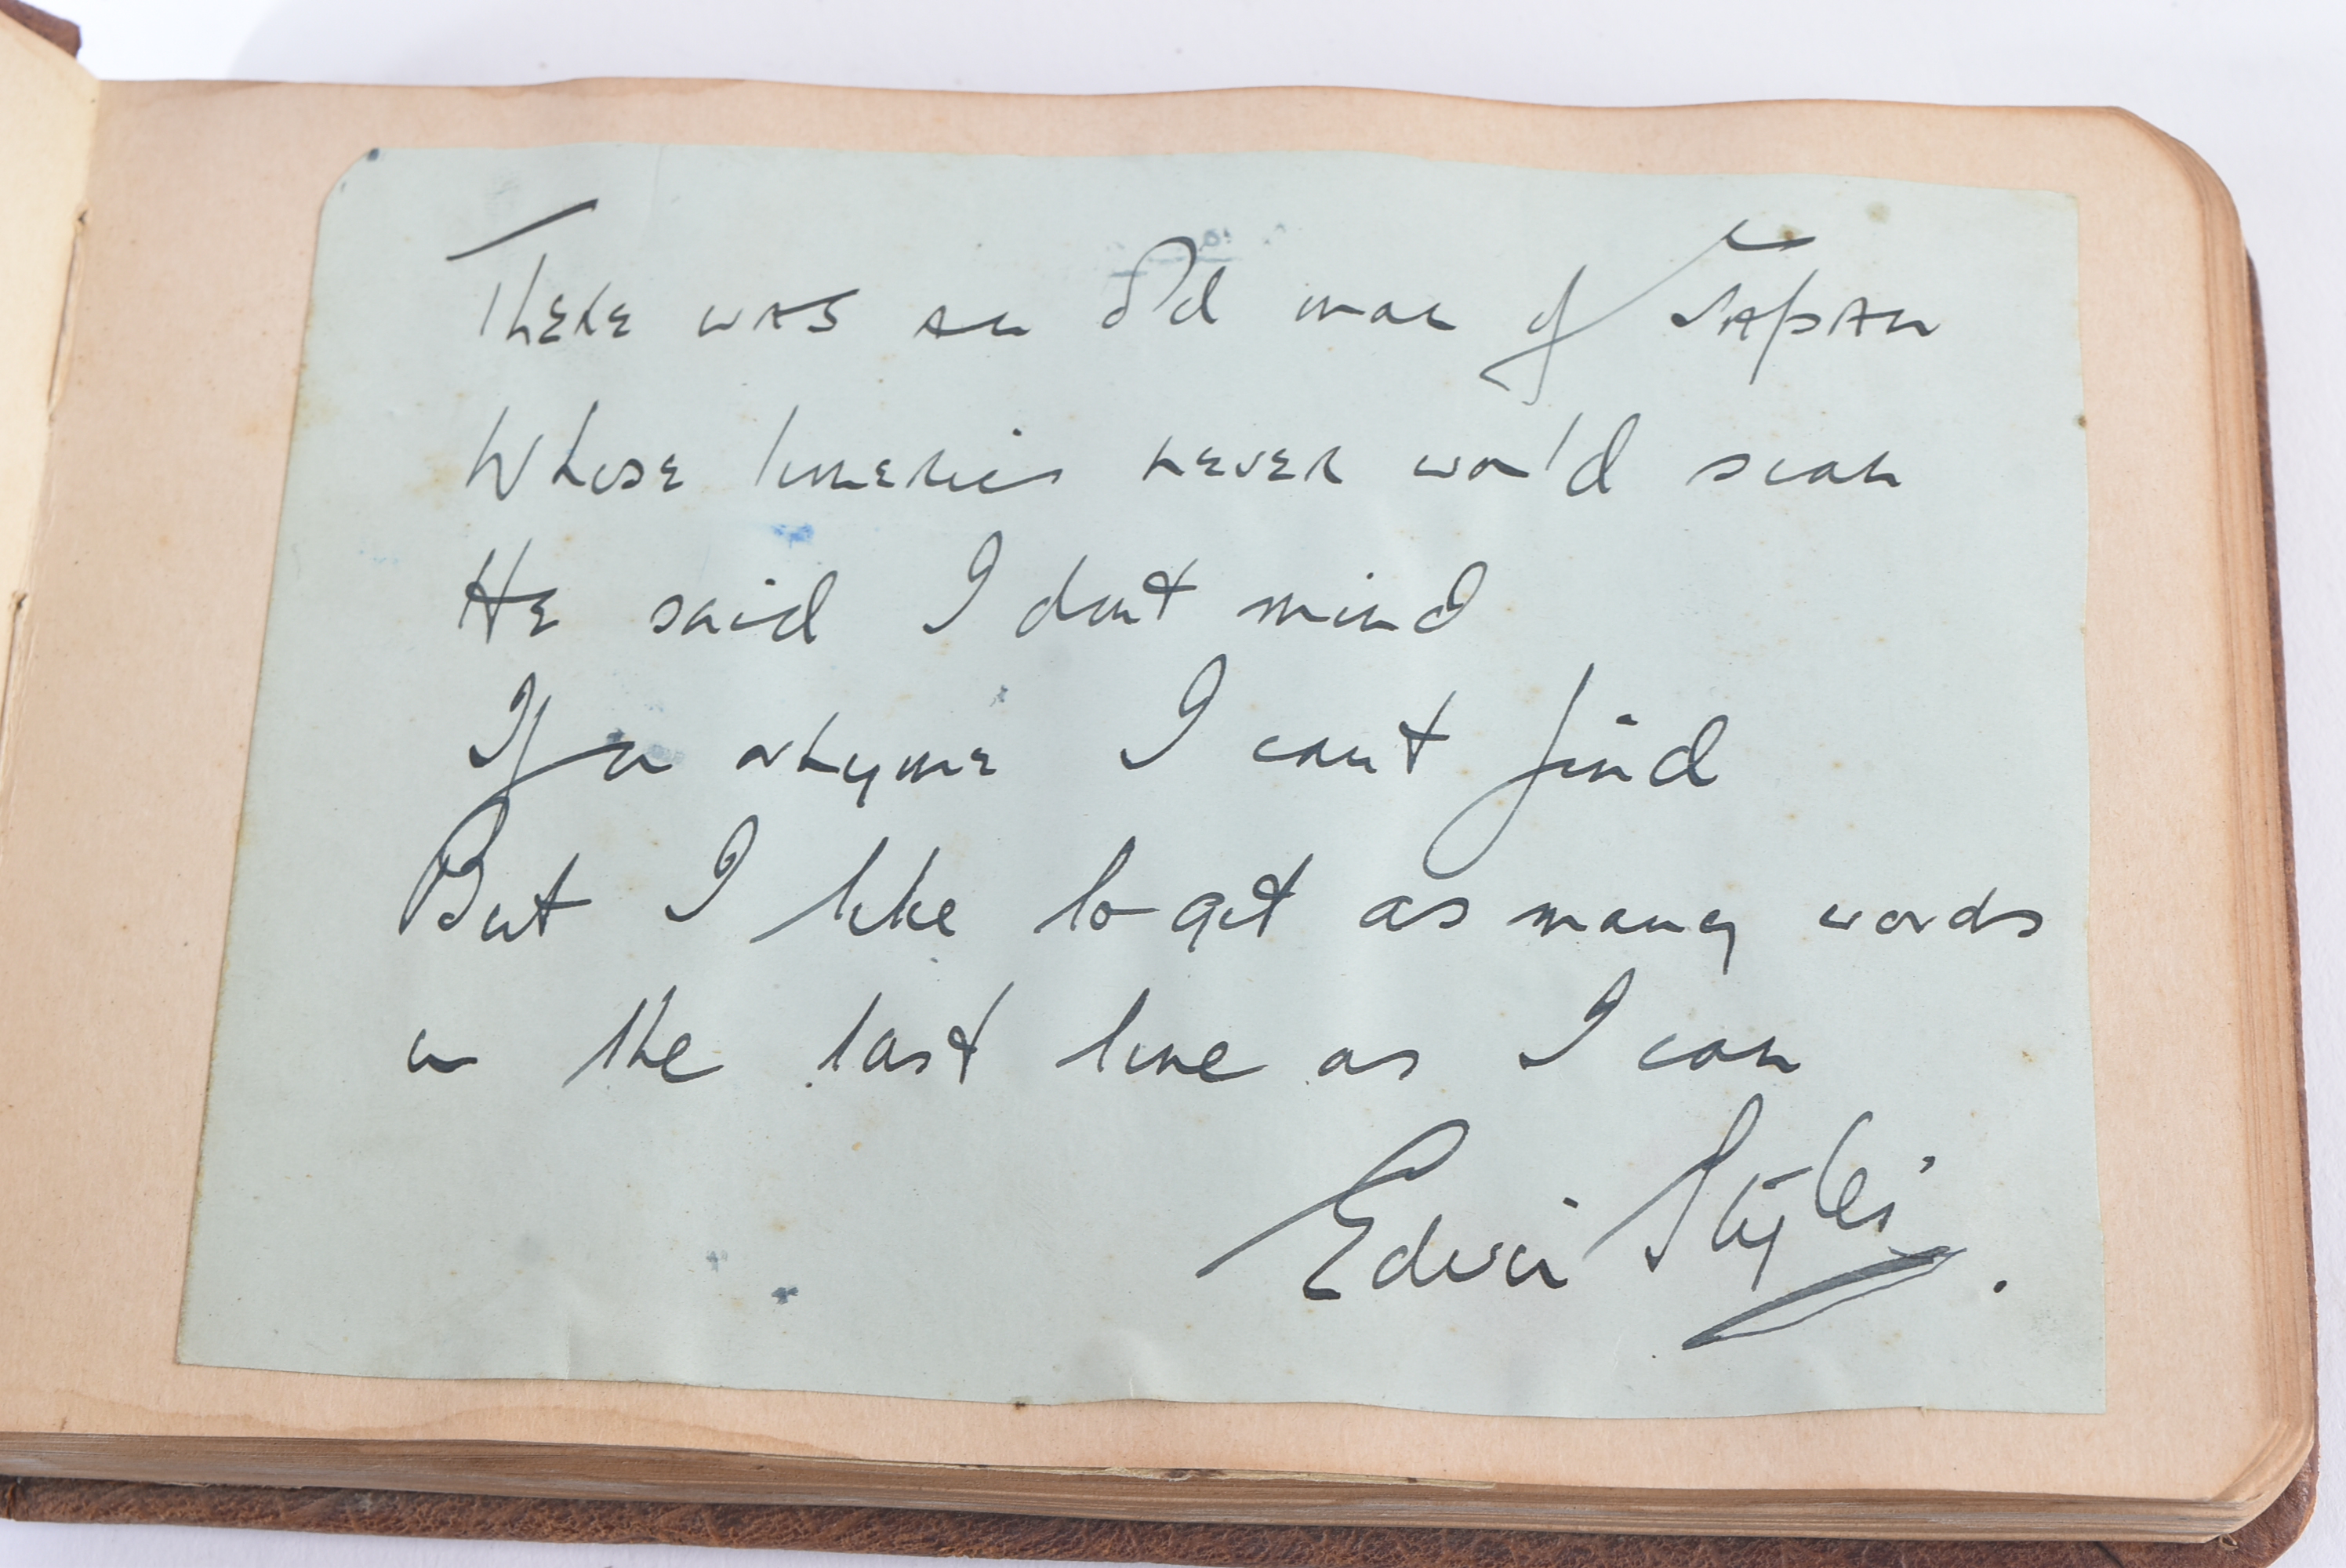 There was an Old man of Japan
Whose limerics never would scan
He said I dont mind
If a rhyme I cant find
But I like to get as many words
in the last line as I can
Edwin Styles.